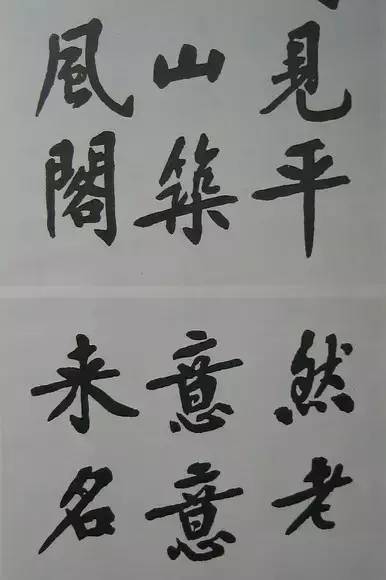 見平
山築
風閣
然老
意意
来名